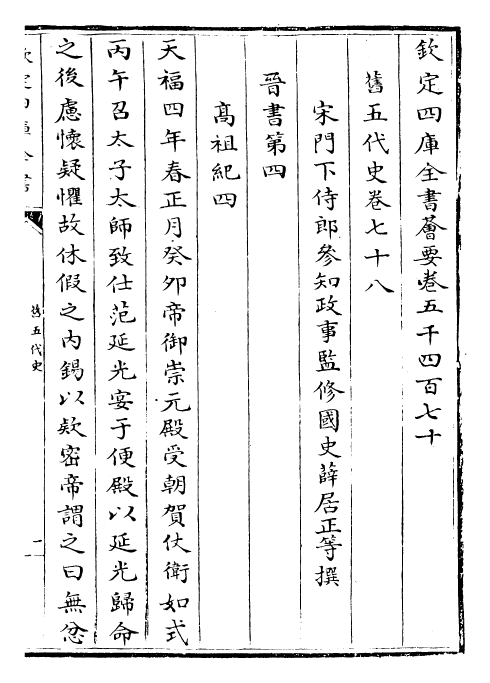 欽定四庫全書薈要卷五千四百七十
舊五代史卷七十八
宋門下侍郎參知政事監修國史薛居正等撰
晉書第四
高祖紀四
天福四年春正月癸卯帝御崇元殿受朝賀仗衛如式
丙午召太子太師致仕范延光宴于便殿以延光歸命
之後慮懷疑懼故休假之内錫以欵密帝謂之曰無忿
欽定四庫全書
舊五代史
一